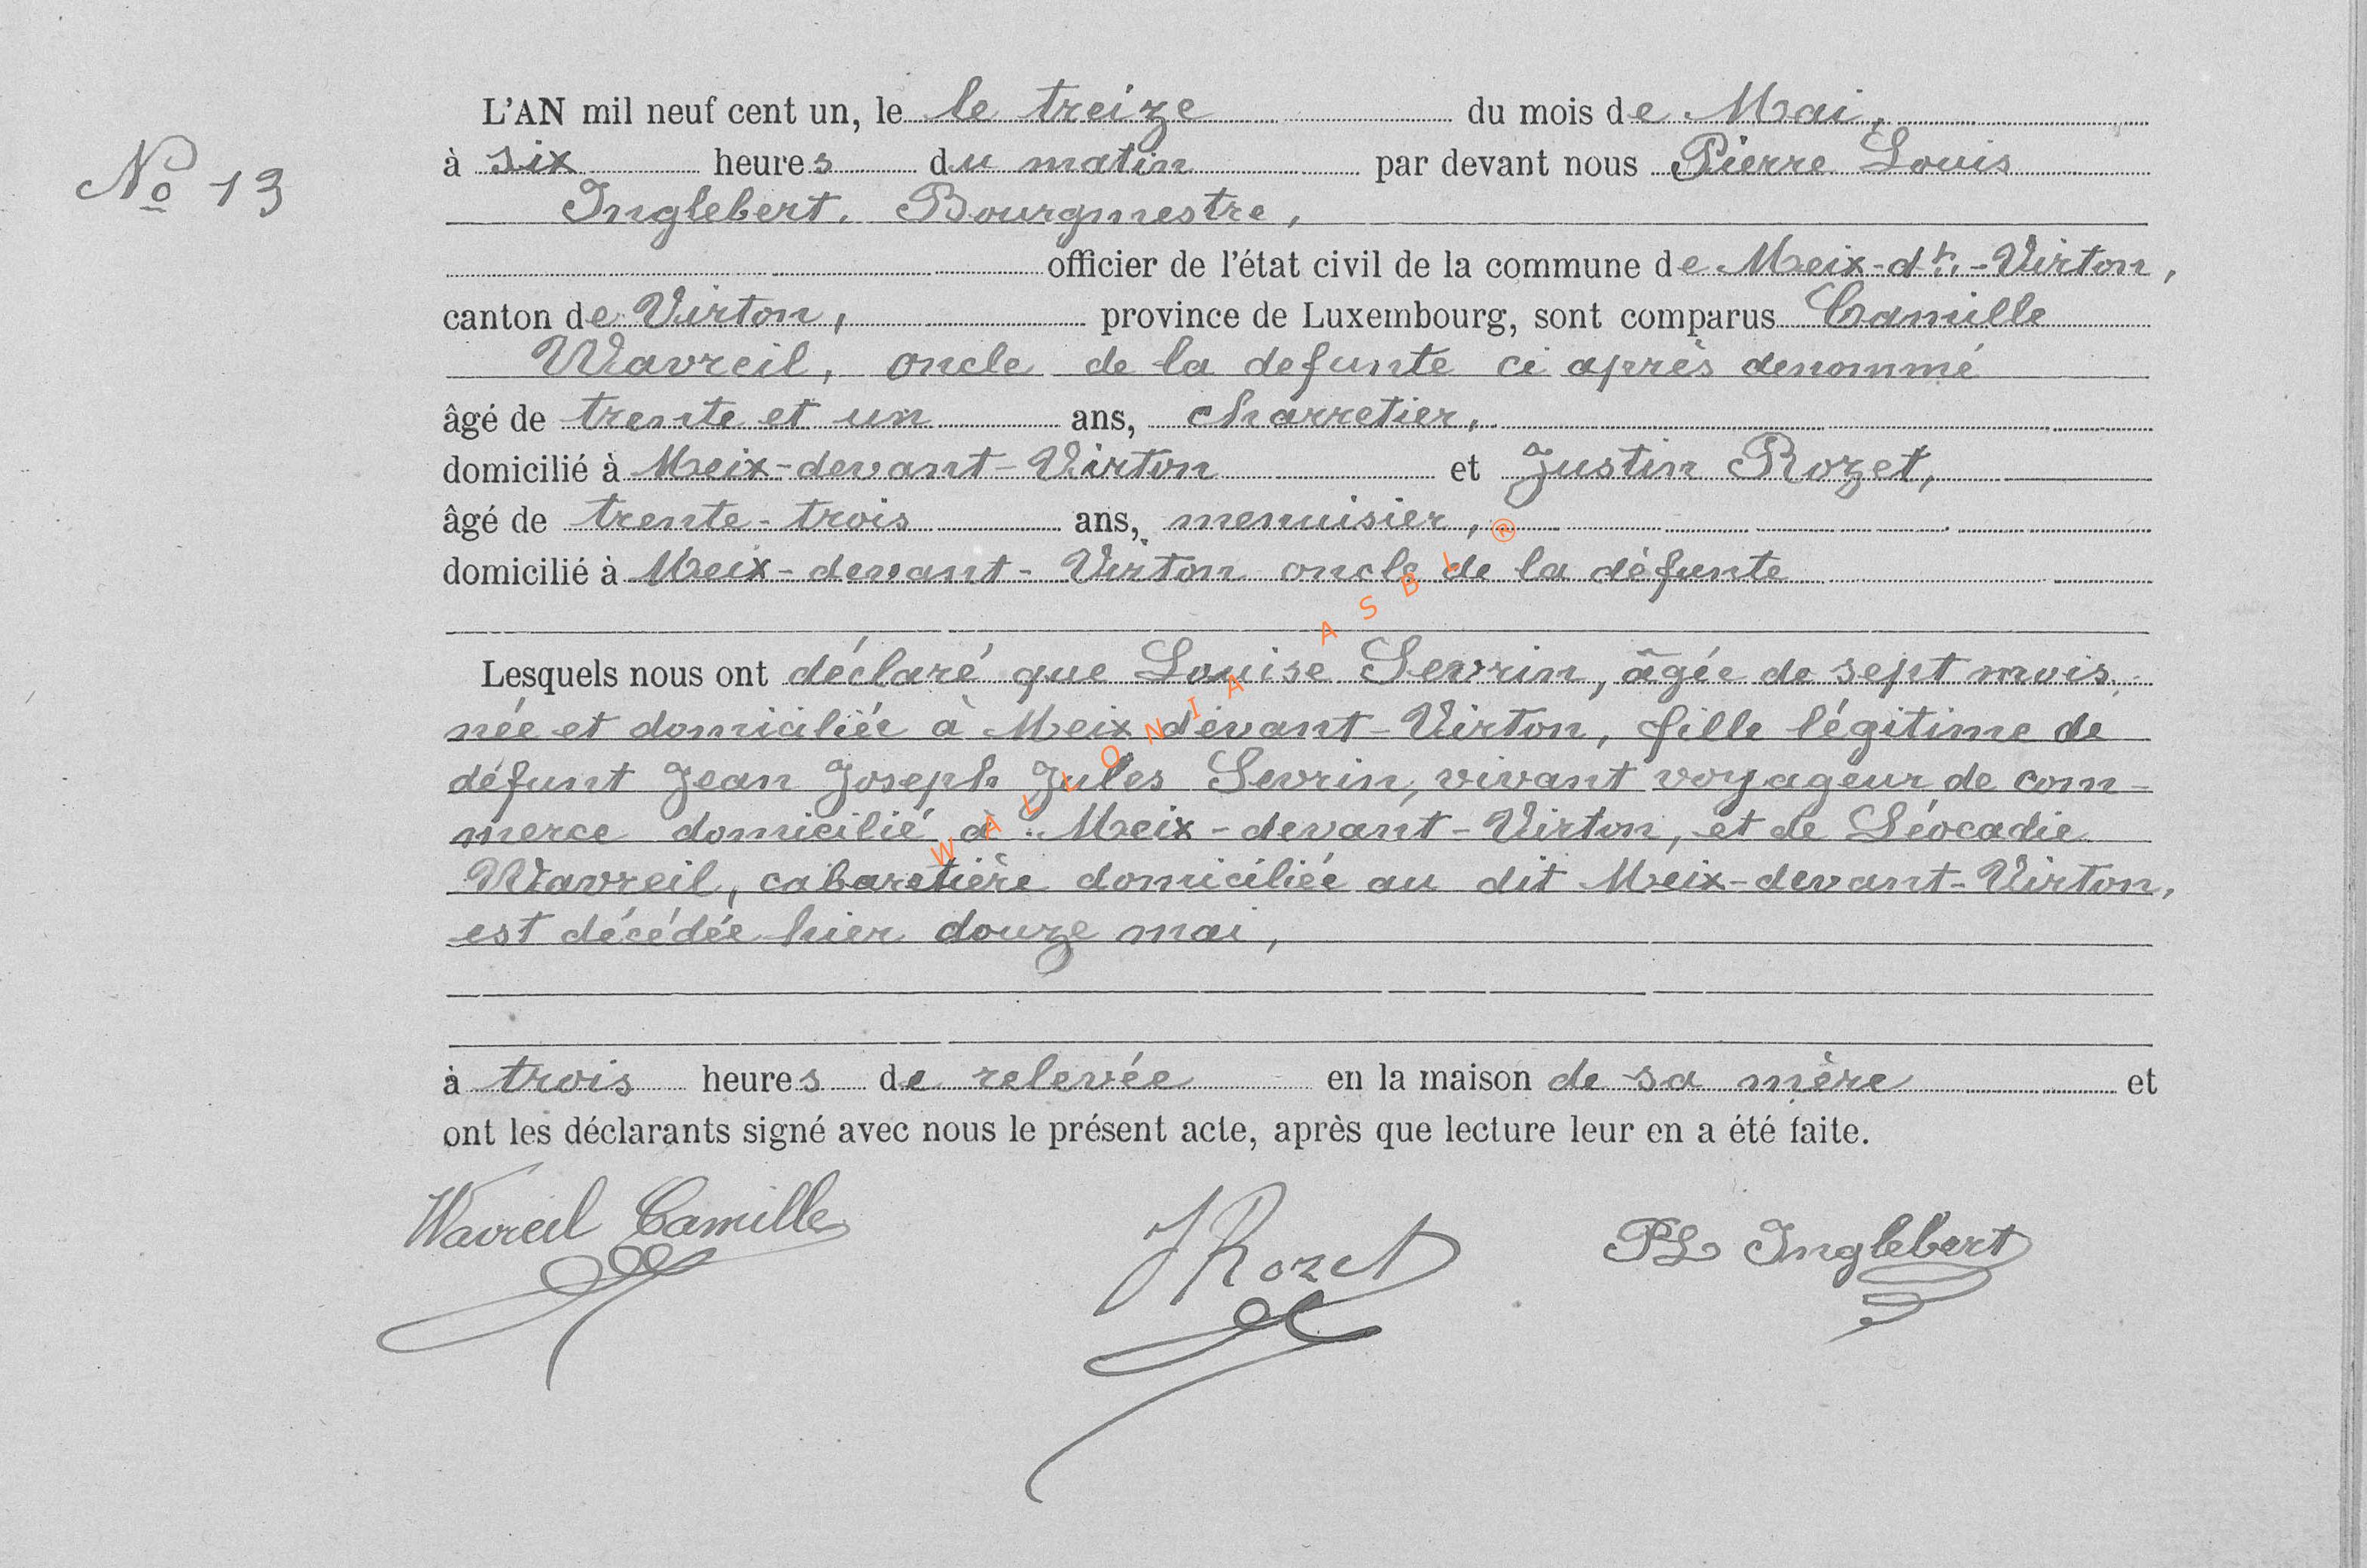 L'AN mil neuf cent un, le le treize du mois de Mai,
No 13
à six heures du matin par devant nous Pierre Louis
Inglebert, Bourgmestre,
officier de l'état civil de la commune de Meix-dt-Virton,
canton de Virton, province de Luxembourg, sont comparus Camille
Wavreil, oncle de la defunte ci après denommé
âgé de trente et un ans, charretier,
domicilié à Meix-devant-Virton et Justin Rozet,
âgé de trente-trois ans, menuisier,
domicilié à Meix-devant-Virton oncle de la défunte
Lesquels nous ont déclaré que Louise Sevrin, âgée de sept mois,
née et domiciliée à Meix devant-Virton, fille légitime de
défunt Jean Joseph Jules Sevrin, vivant voyageur de com-
merce domicilié à Meix-devant-Virton, et de Léocadie
Wavreil, cabaretière domiciliée au dit Meix-devant-Virton,
est décédée hier douze mai,
à trois heures de relevée en la maison de sa mère et
ont les déclarants signé avec nous le présent acte, après que lecture leur en a été faite.
Wavreil Camille JRozet PL Inglebert
WALLONIA ASBL ®